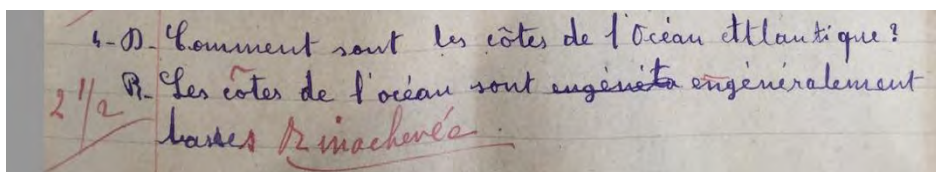 4-D- Comment sont les côtes de l'Océan Atlantique?
R- Les côtes de l'océan sont engénéta engénéralement
2 1/2
basses R inachevée.